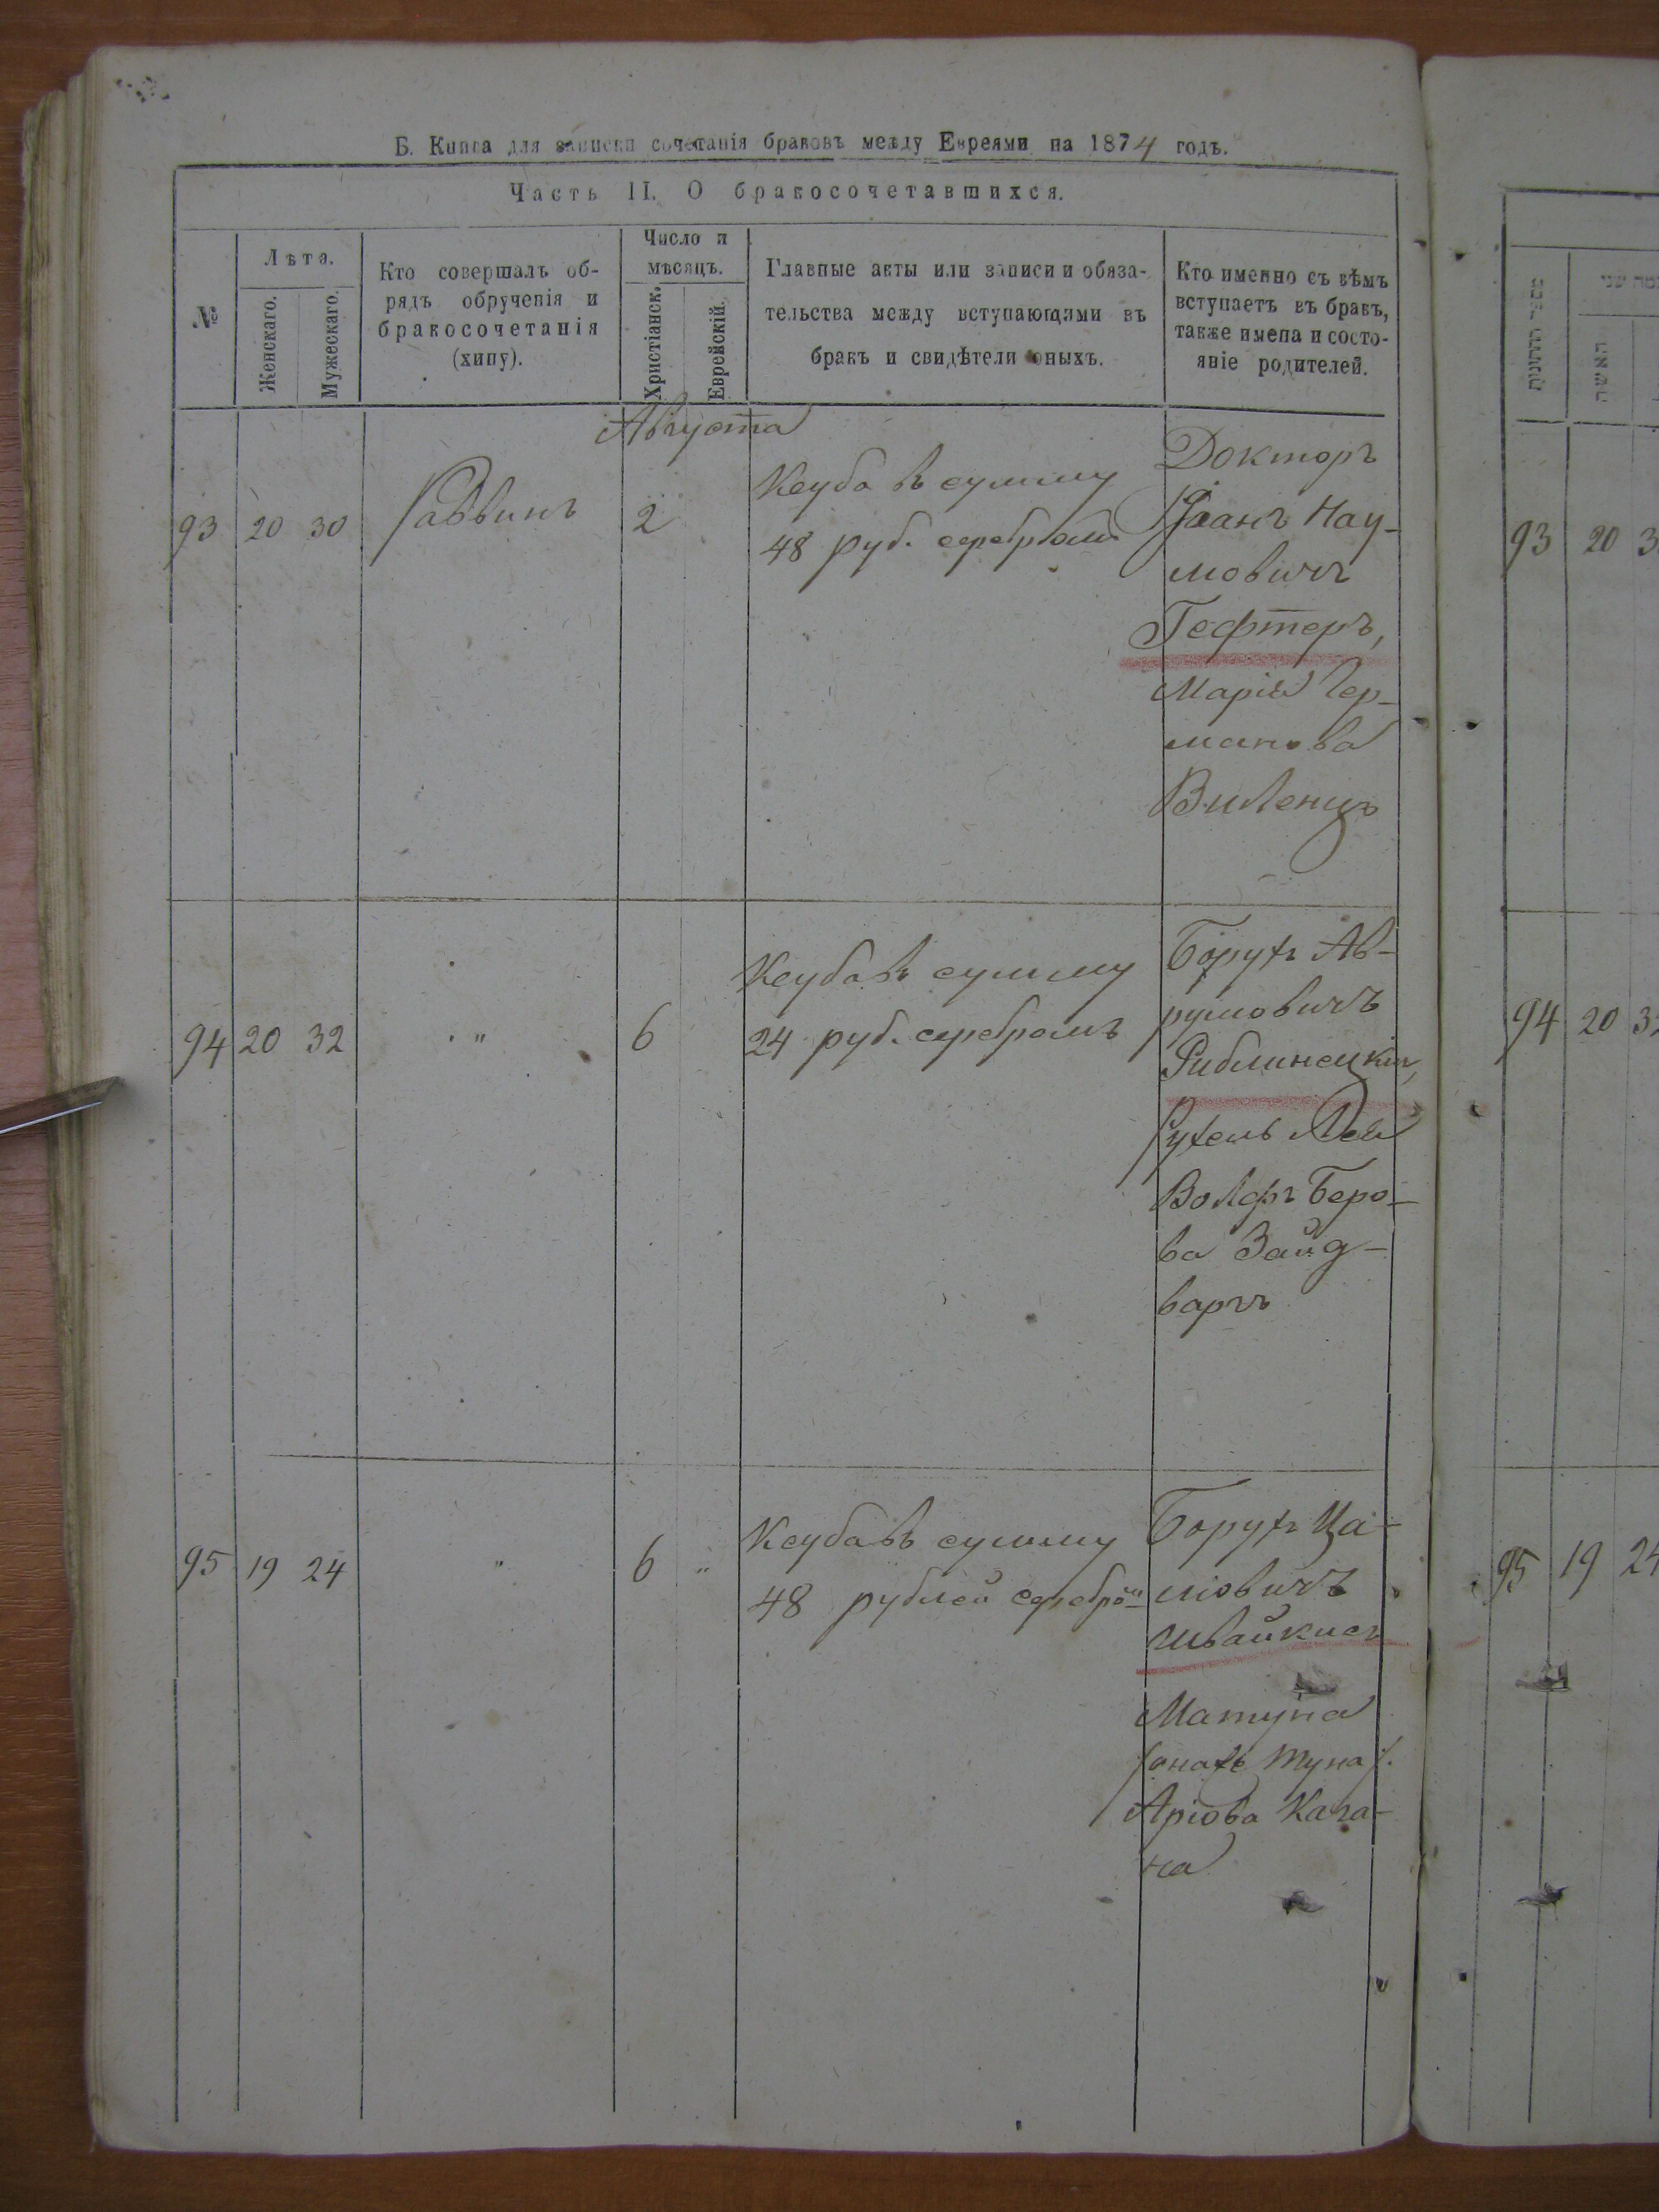 Б. Книга для записки сочетанія браковъ между Евреями на 1874 годъ.
Часть II. О бракосочетавшихся.
№
Лѣта.
Женскаго.
Мужескаго.
Кто совершалъ об-
рядъ обрученія и
бракосочетанія
(хипу).
Число и
мѣсяцъ.
Христіанск.
Еврейскій.
Главные акты или записи и обяза-
тельства между вступающими въ
бракъ и свидѣтели оныхъ.
Кто именно съ кѣмъ
вступаетъ въ бракъ,
также имена и состо-
яніе родителей.
Августа
93 20 30 Раввинъ 2
Ксуба въ сумму
48 руб. серебромъ
Докторъ
Нау-
мовичъ
Гефтеръ,
Марія Гер-
манова
Виленцъ
94 20 32 " 6
Ксуба въ сумму
24 руб. серебромъ
Борухъ Ав-
румовичъ
Рыблинецкій,
Рухель Лея
Волфъ Беро-
ва Зайд-
варгъ
95 19 24 " 6 "
Ксуба въ сумму
48 рублей серебром
Борухъ Ца-
ліовичъ
Швайкисъ
Матуна
Аріова Кага-
на
93 20 3
94 20 3
95 19 24
האשה